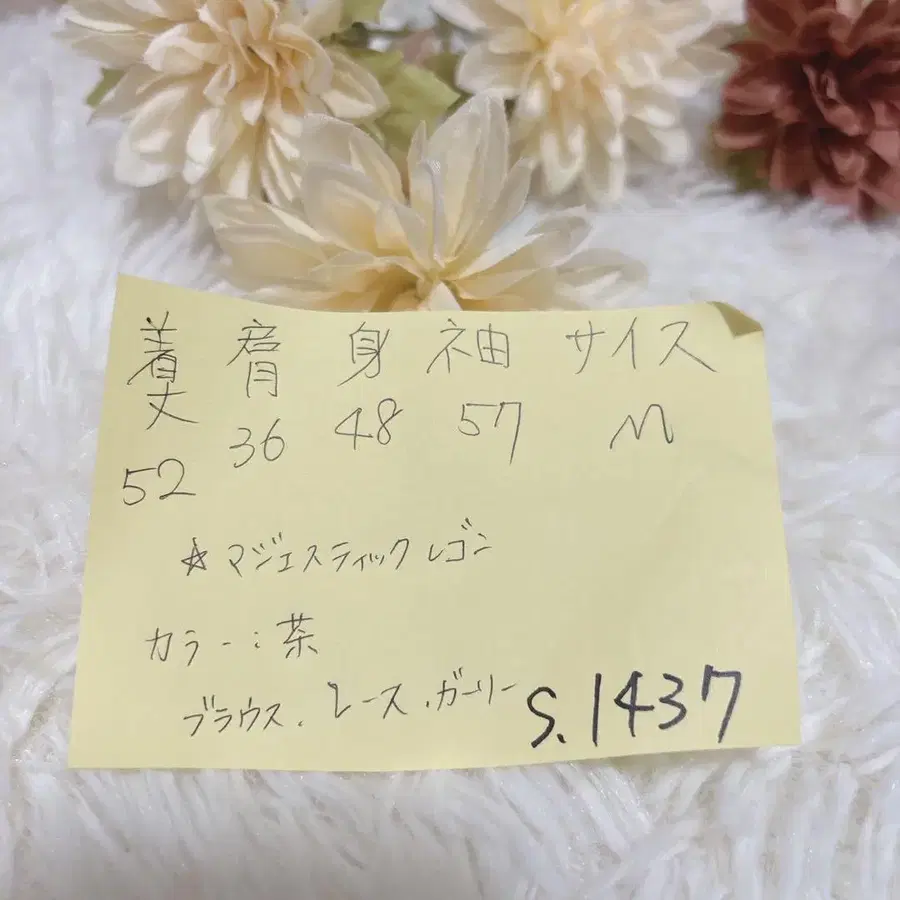 着丈 肩 身 袖 サイズ
52 36 48 57 M
☆マジェスティックレゴン
カラー:茶
ブラウス、レース、ガーリー S.1437